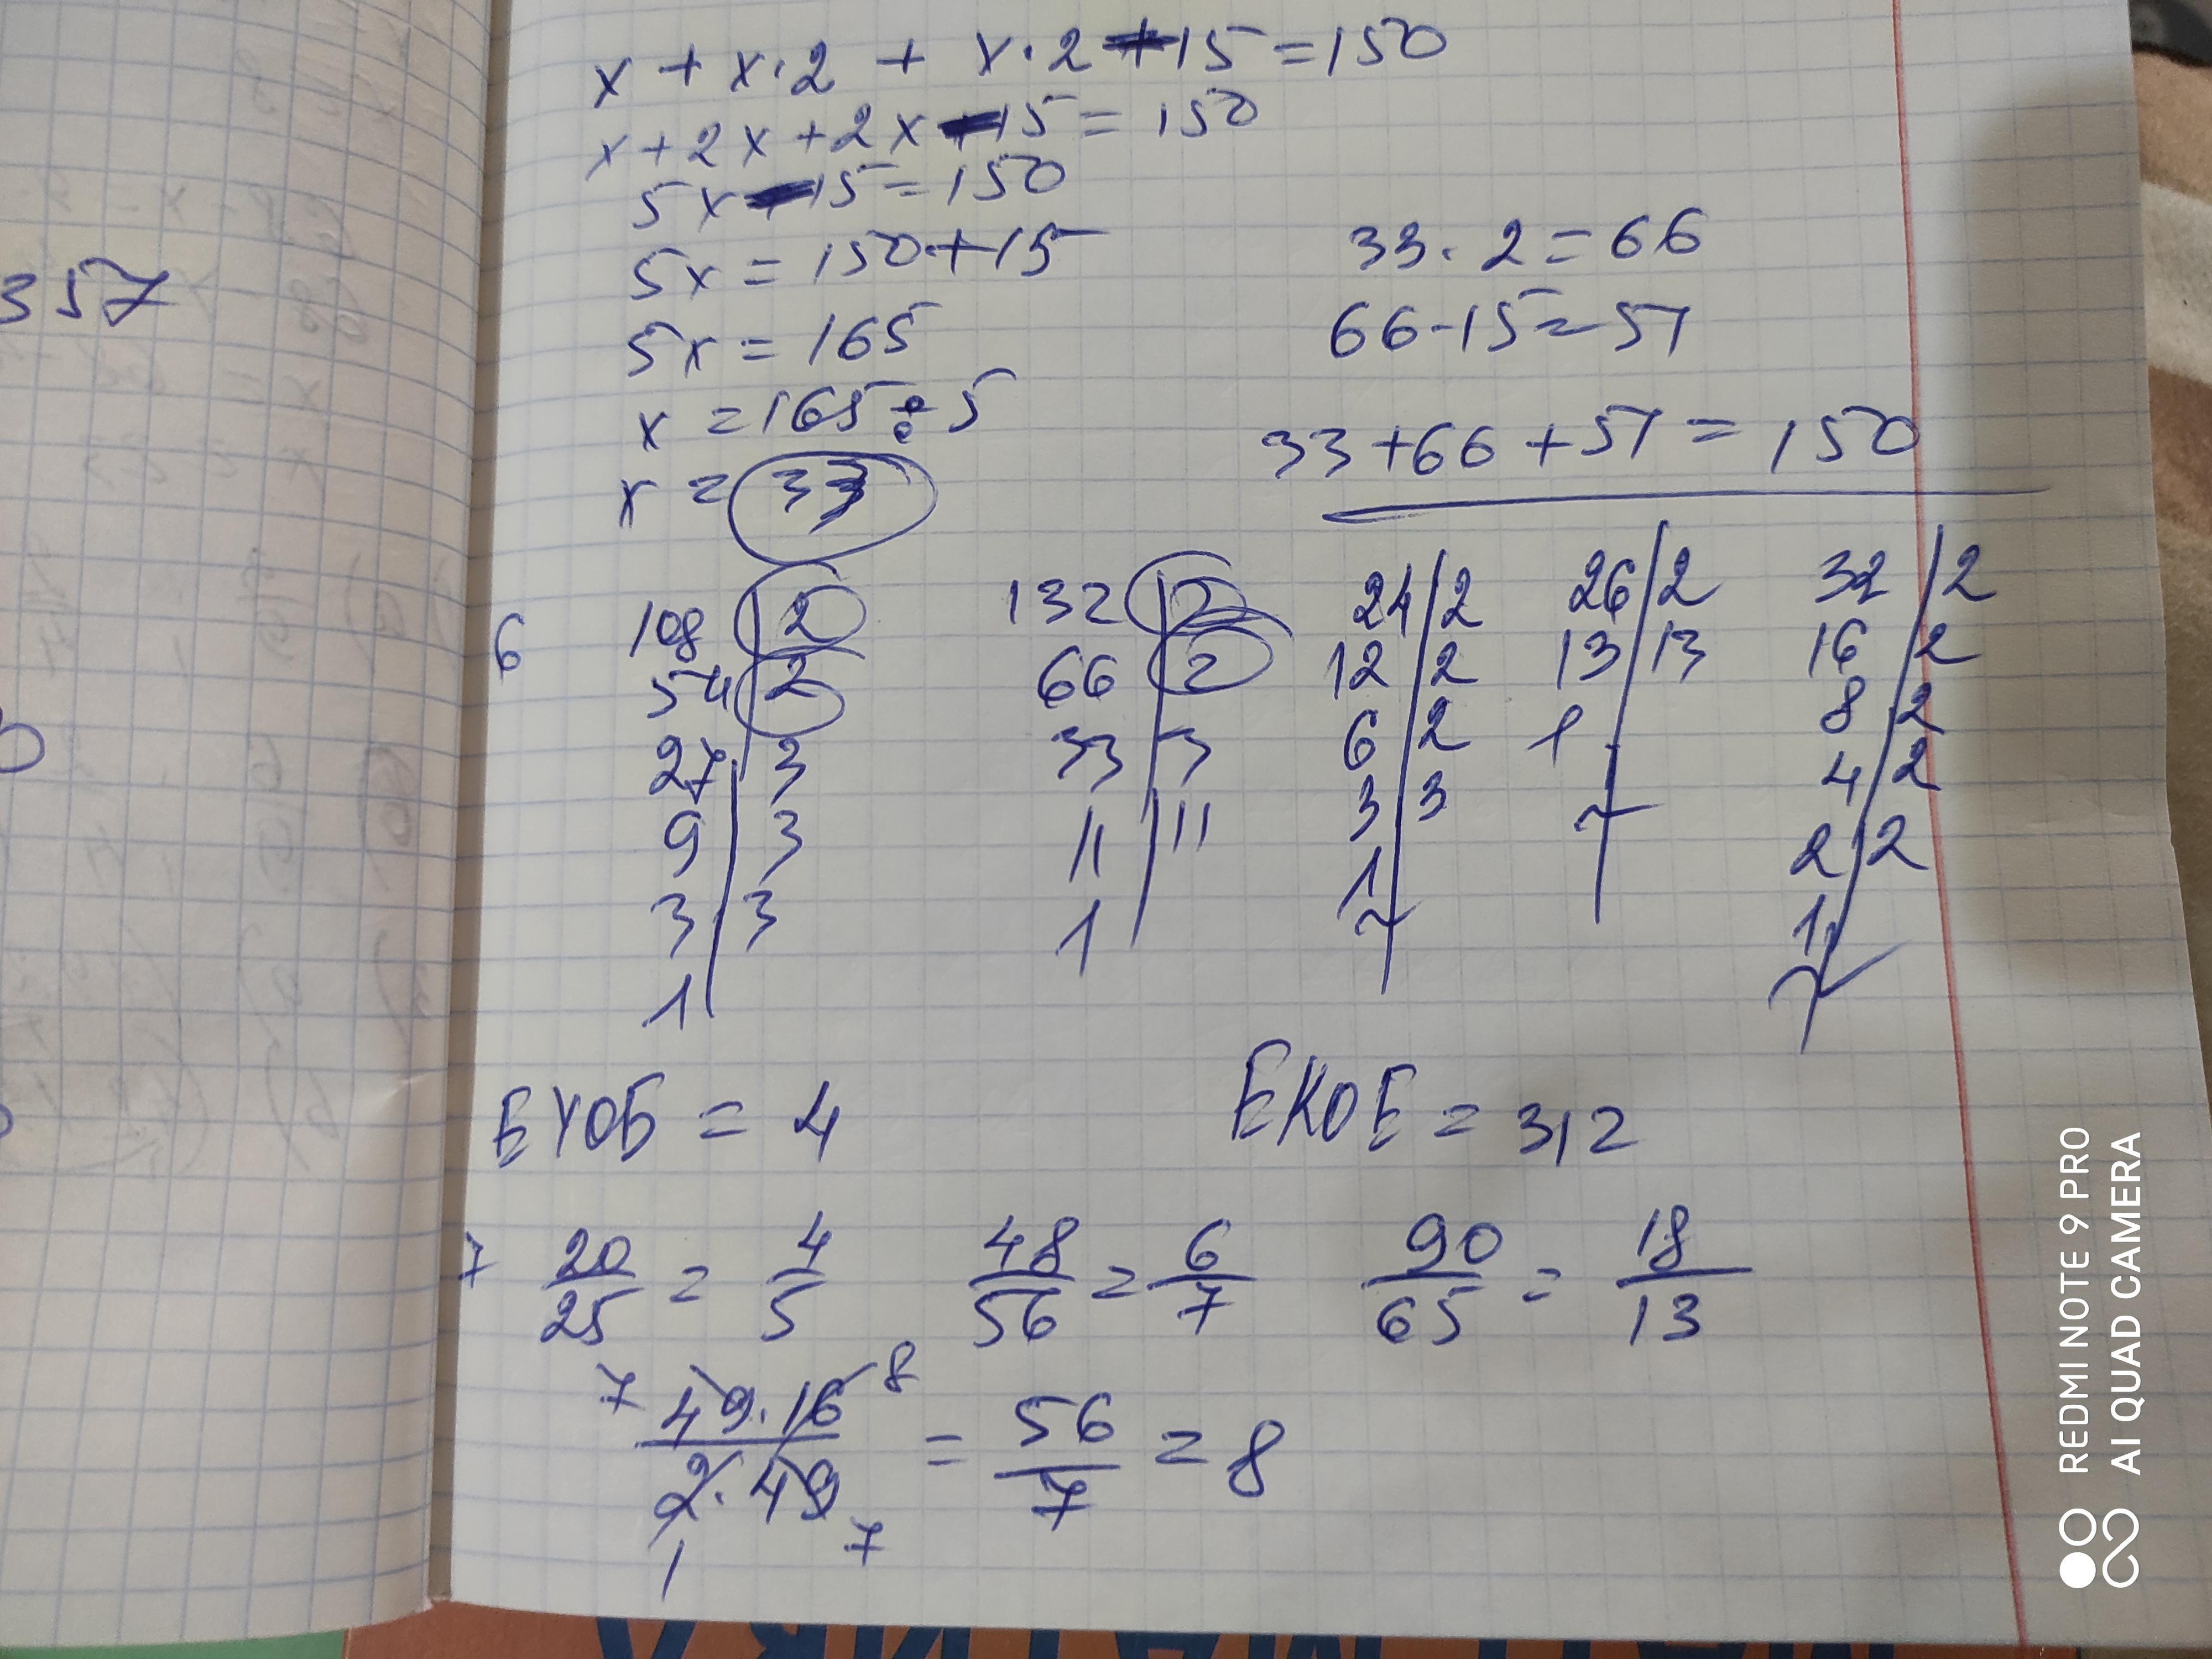 x + x·2 + x·2 - 15 = 150
x + 2x + 2x - 15 = 150
5x - 15 = 150
5x = 150 + 15
5x = 165
x = 165 : 5
x = 33
33 · 2 = 66
66 - 15 = 51
33 + 66 + 51 = 150
357
6 108 | 2 132 | 2 24 | 2 26 | 2 32 | 2
54 | 2 66 | 2 12 | 2 13 | 13 16 | 2
27 | 3 33 | 3 6 | 2 1 8 | 2
9 | 3 11 | 11 3 | 3 4 | 2
3 | 3 1 1 2 | 2
1 1
ƏYOB = 4 ƏKOB = 312
7 20/25 = 4/5 48/56 = 6/7 90/65 = 18/13
7 49·16 8 / 2·49 1 7 = 56/7 = 8
REDMI NOTE 9 PRO
AI QUAD CAMERA